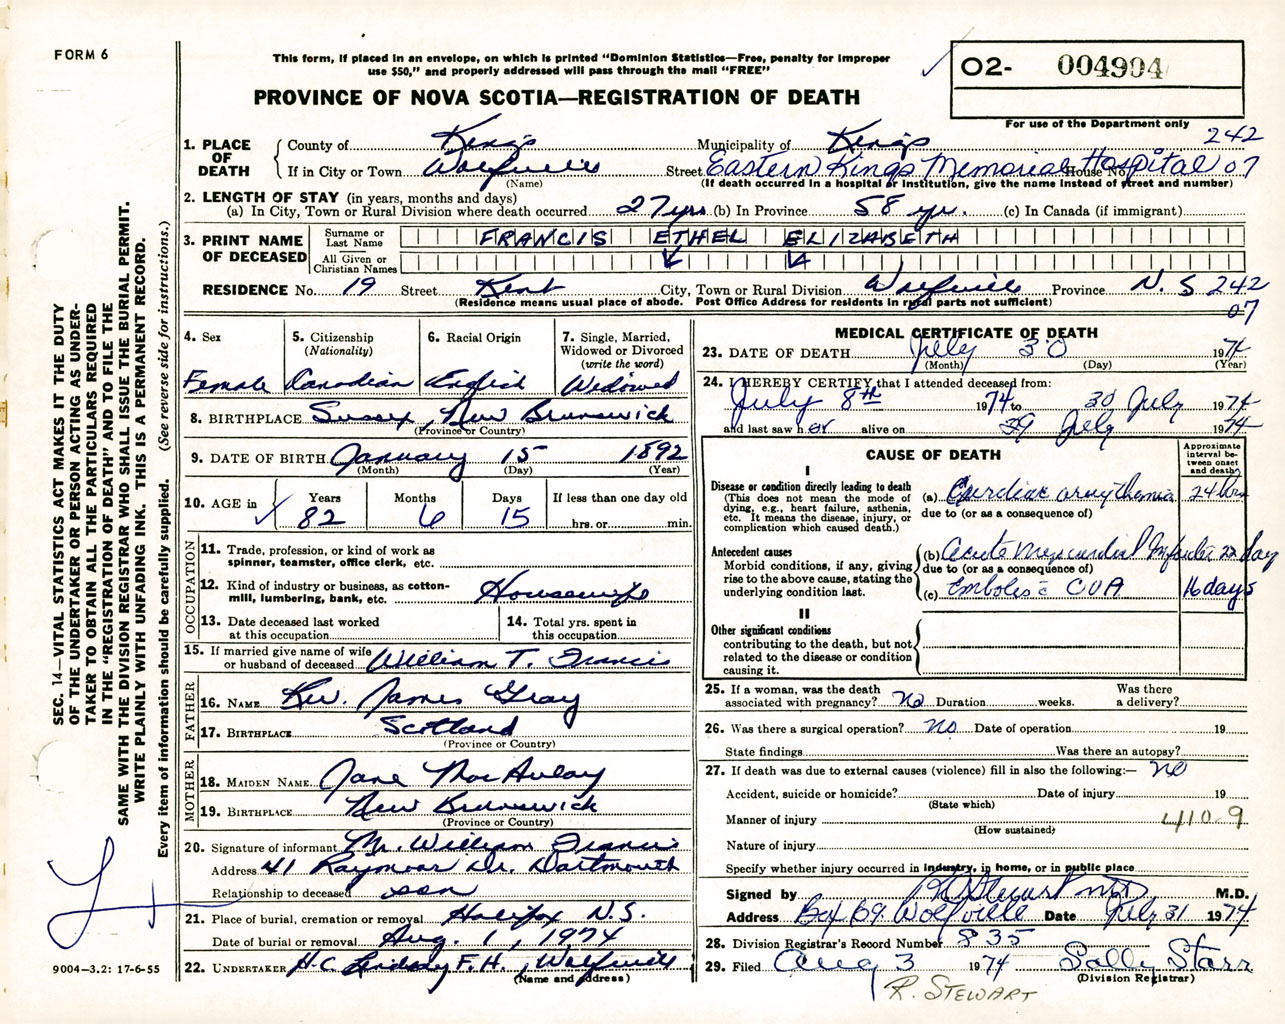 FORM 6
This form, if placed in an envelope, on which is printed "Dominion Statistics—Free, penalty for improper
use $50," and properly addressed will pass through the mail "FREE"
PROVINCE OF NOVA SCOTIA—REGISTRATION OF DEATH
O2- 004994
For use of the Department only
242
1. PLACE OF DEATH
County of Kings Municipality of Kings
If in City or Town Wolfville Street Eastern Kings Memorial Hospital House No. 07
(Name) (If death occurred in a hospital or institution, give the name instead of street and number)
2. LENGTH OF STAY (in years, months and days)
(a) In City, Town or Rural Division where death occurred 27 yrs (b) In Province 58 yr. (c) In Canada (if immigrant)
3. PRINT NAME OF DECEASED
Surname or Last Name FRANCIS ETHEL ELIZABETH
All Given or Christian Names
RESIDENCE No. 19 Street Kent City, Town or Rural Division Wolfville Province N.S 242
(Residence means usual place of abode. Post Office Address for residents in rural parts not sufficient)
07
4. Sex
Female
5. Citizenship
(Nationality)
Canadian
6. Racial Origin
English
7. Single, Married,
Widowed or Divorced
(write the word)
Widowed
8. BIRTHPLACE Sussex, New Brunswick
(Province or Country)
9. DATE OF BIRTH January 15 1892
(Month) (Day) (Year)
10. AGE in
Years Months Days If less than one day old
82 6 15 hrs. or min.
OCCUPATION
11. Trade, profession, or kind of work as
spinner, teamster, office clerk, etc.
12. Kind of industry or business, as cotton-
mill, lumbering, bank, etc. Housewife
13. Date deceased last worked
at this occupation
14. Total yrs. spent in
this occupation
15. If married give name of wife
or husband of deceased William T. Francis
FATHER
16. NAME Rev. James Gray
17. BIRTHPLACE Scotland
(Province or Country)
MOTHER
18. MAIDEN NAME Jane MacAulay
19. BIRTHPLACE New Brunswick
(Province or Country)
20. Signature of informant Mr. William Francis
Address 41 Raymoor Dr. Dartmouth
Relationship to deceased son
21. Place of burial, cremation or removal Halifax N.S.
Date of burial or removal Aug. 1, 1974
22. UNDERTAKER H.C. Lindsay F.H., Wolfville
(Name and address)
MEDICAL CERTIFICATE OF DEATH
23. DATE OF DEATH July 30 1974
(Month) (Day) (Year)
24. I HEREBY CERTIFY that I attended deceased from:
July 8th 1974 to 30 July 1974
and last saw her alive on 29 July 1974
CAUSE OF DEATH
Approximate
interval be-
tween onset
and death
I
Disease or condition directly leading to death
(This does not mean the mode of
dying, e.g., heart failure, asthenia,
etc. It means the disease, injury, or
complication which caused death.)
(a) Cardiac arrythemia 24 hrs
due to (or as a consequence of)
Antecedent causes
Morbid conditions, if any, giving
rise to the above cause, stating the
underlying condition last.
(b) Acute Myocardial Infarction 22 day
due to (or as a consequence of)
(c) Embolis c CVA 16 days
II
Other significant conditions
contributing to the death, but not
related to the disease or condition
causing it.
25. If a woman, was the death
associated with pregnancy? no Duration weeks. Was there
a delivery?
26. Was there a surgical operation? no Date of operation 19
State findings Was there an autopsy?
27. If death was due to external causes (violence) fill in also the following:— no
Accident, suicide or homicide? Date of injury 19
(State which)
Manner of injury 410.9
(How sustained)
Nature of injury
Specify whether injury occurred in industry, in home, or in public place
Signed by R A Stewart M.D.
Address Box 69 Wolfville Date July 31 1974
28. Division Registrar's Record Number 835
29. Filed Aug 3 1974 Sally Starr
(Division Registrar)
R. STEWART
9004—3.2: 17-6-55
SEC. 14—VITAL STATISTICS ACT MAKES IT THE DUTY
OF THE UNDERTAKER OR PERSON ACTING AS UNDER-
TAKER TO OBTAIN ALL THE PARTICULARS REQUIRED
IN THE "REGISTRATION OF DEATH" AND TO FILE THE
SAME WITH THE DIVISION REGISTRAR WHO SHALL ISSUE THE BURIAL PERMIT.
WRITE PLAINLY WITH UNFADING INK. THIS IS A PERMANENT RECORD.
Every item of information should be carefully supplied. (See reverse side for instructions.)